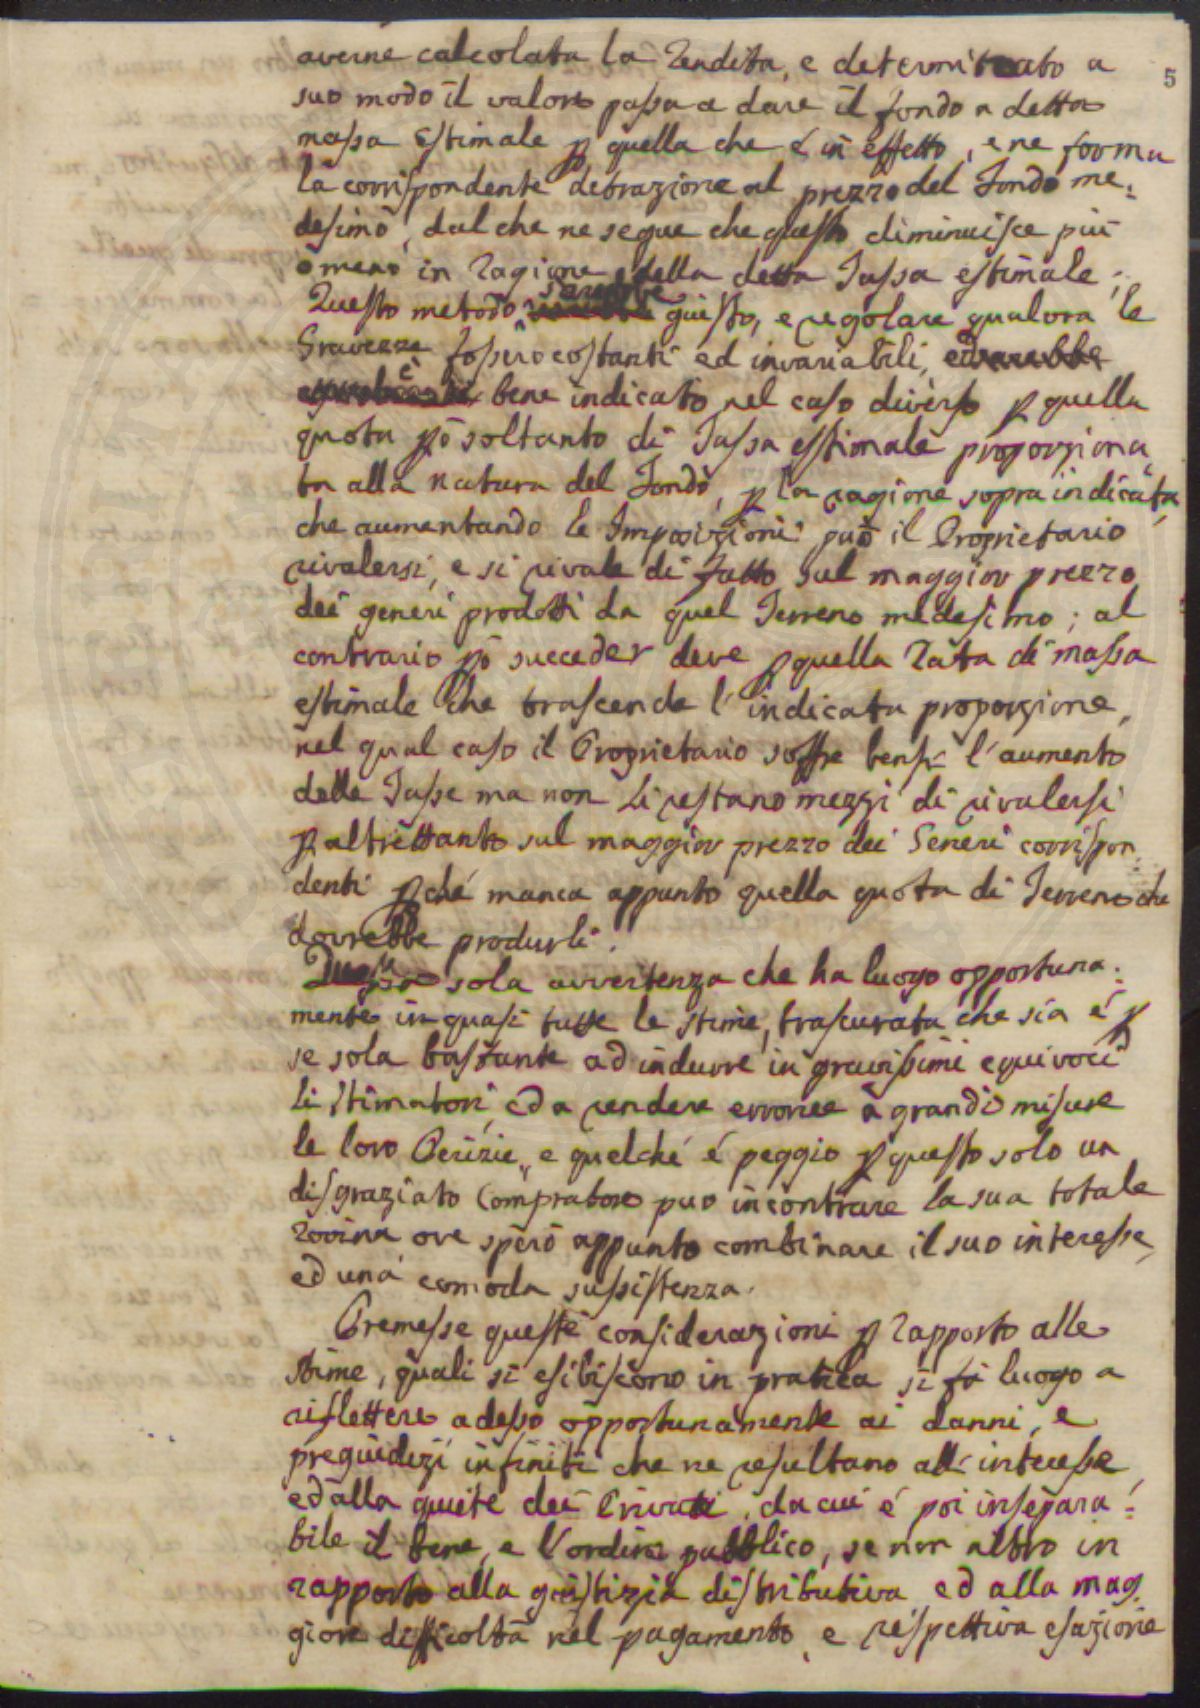 5
averne calcolata la Rendita, e determinato a
suo modo il valore passa a dare il fondo a detta
massa Estimale p quella che è in effetto, e ne forma
la corrispondente detrazione al prezzo del Fondo me:
desimo, dal che ne segue che questo diminuisce più
o meno in Ragione della detta Tassa estimale;
sarebbe
Questo metodo giusto, e regolare qualora le
Gravezze fossero costanti ed invariabili,
è bene indicato nel caso diverso p quella
quota pò soltanto di Tassa estimale proporziona
ta alla natura del Fondo, p la ragione sopra indicata,
che aumentando le Imposizioni può il Proprietario
rivalersi, e si rivale di fatto sul maggior prezzo
dei generi prodotti da quel Terreno medesimo; al
contrario pò succeder deve p quella Rata di massa
estimale che trascende l'indicata proporzione,
nel qual caso il Proprietario soffre bensì l'aumento
delle Tasse ma non li restano mezzi di rivalersi
p altrettanto sul maggior prezzo dei Generi corrispon
denti pché manca appunto quella quota di Terreno che
dovrebbe produrli.
sola avvertenza che ha luogo opportuna:
mente in quasi tutte le stime, trascurata che sia é p
se sola bastante ad indurre in gravissimi equivoci
li Stimatori, ed a rendere erronee a grandi misure
le loro Perizie, e quelché é peggio p questo solo un
disgraziato Compratore puo incontrare la sua totale
rovina ove sperò appunto combinare il suo interesse,
ed una comoda sussistenza.
Premesse queste considerazioni p rapporto alle
stime, quali si esibiscono in pratica si fà luogo a
riflettere adesso opportunamente ai danni, e
pregiudizi infiniti che ne resultano all'interesse
ed alla quiete dei Privati, da cui é poi insepara:
bile il bene, e l'ordine pubblico, se non altro in
rapporto alla giustizia distributiva ed alla mag,
giore difficoltà nel pagamento, e respettiva esazione